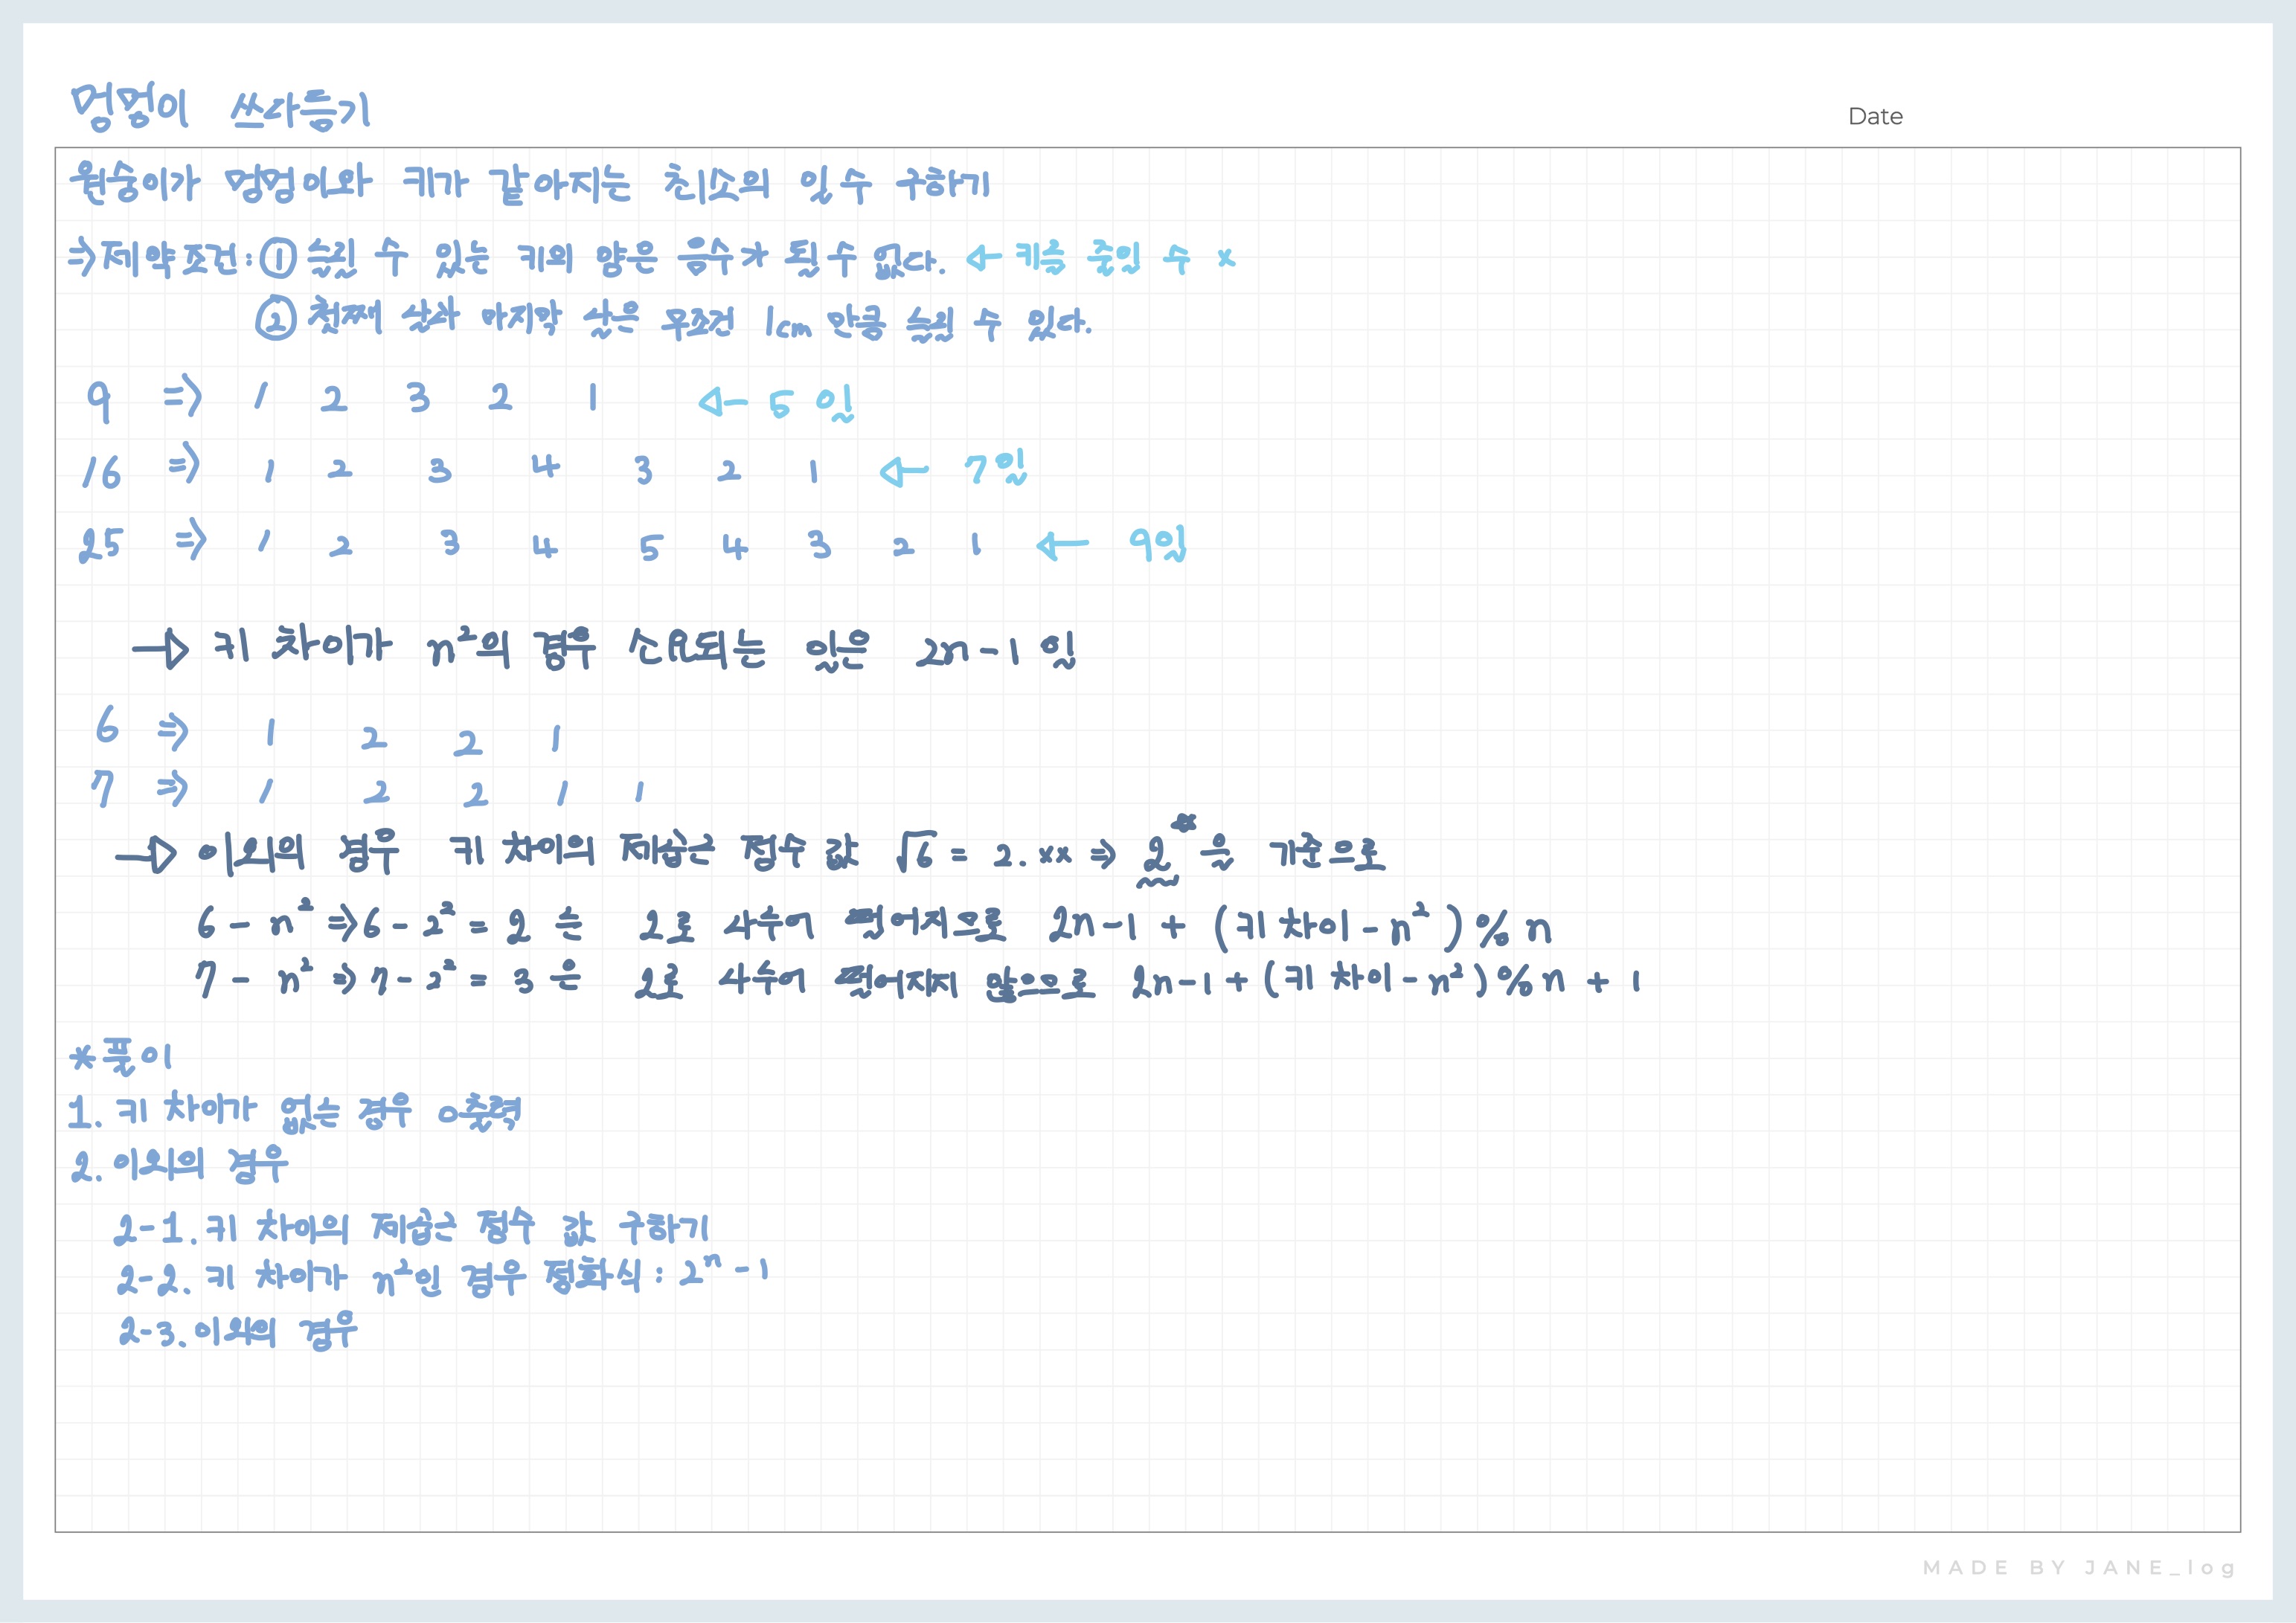 멍멍이 쓰다듬기
Date
원숭이가 멍멍이와 키가 같아지는 최소의 일 수 구하기
⇒ 제약 조건 : ① 늘릴 수 있는 키의 양은 음수가 될 수 없다. ← 키를 줄일 수 x
② 첫째 날과 마지막 날은 무조건 1cm 만큼 늘릴 수 있다.
9 ⇒ 1 2 3 2 1 ← 5일
16 ⇒ 1 2 3 4 3 2 1 ← 7일
25 ⇒ 1 2 3 4 5 4 3 2 1 ← 9일
→ 키 차이가 n²의 경우 소요되는 일은 2n-1 일
6 ⇒ 1 2 2 1
7 ⇒ 1 2 2 1 1
→ 이외의 경우 키 차이의 제곱근 정수 값 √6 = 2.xx ⇒ 2 을 기준으로
6 - n² ⇒ 6 - 2² = 2 는 2로 나누어 떨어지므로 2n-1 + (키 차이-n²) % n
7 - n² ⇒ 7 - 2² = 3 은 2로 나누어 떨어지지 않으므로 2n-1 + (키 차이-n²) % n + 1
* 풀이
1. 키 차이가 없는 경우 0 출력
2. 이외의 경우
2-1. 키 차이의 제곱근 정수 값 구하기
2-2. 키 차이가 n²인 경우 점화식 : 2ⁿ-1
2-3. 이외의 경우
MADE BY JANE_log